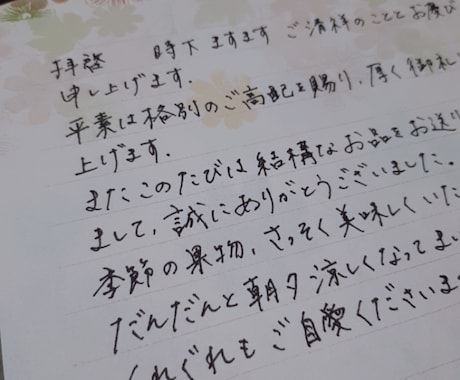 拝啓　時下ますます ご清祥のこととお慶び
申し上げます.
平素は格別のご高配を賜り、厚く御礼
上げます.
またこのたびは結構なお品をお送り
まして、誠にありがとうございました。
季節の果物、さっそく美味しくいた
だんだんと朝夕涼しくなってまい
くれぐれもご自愛くださいませ